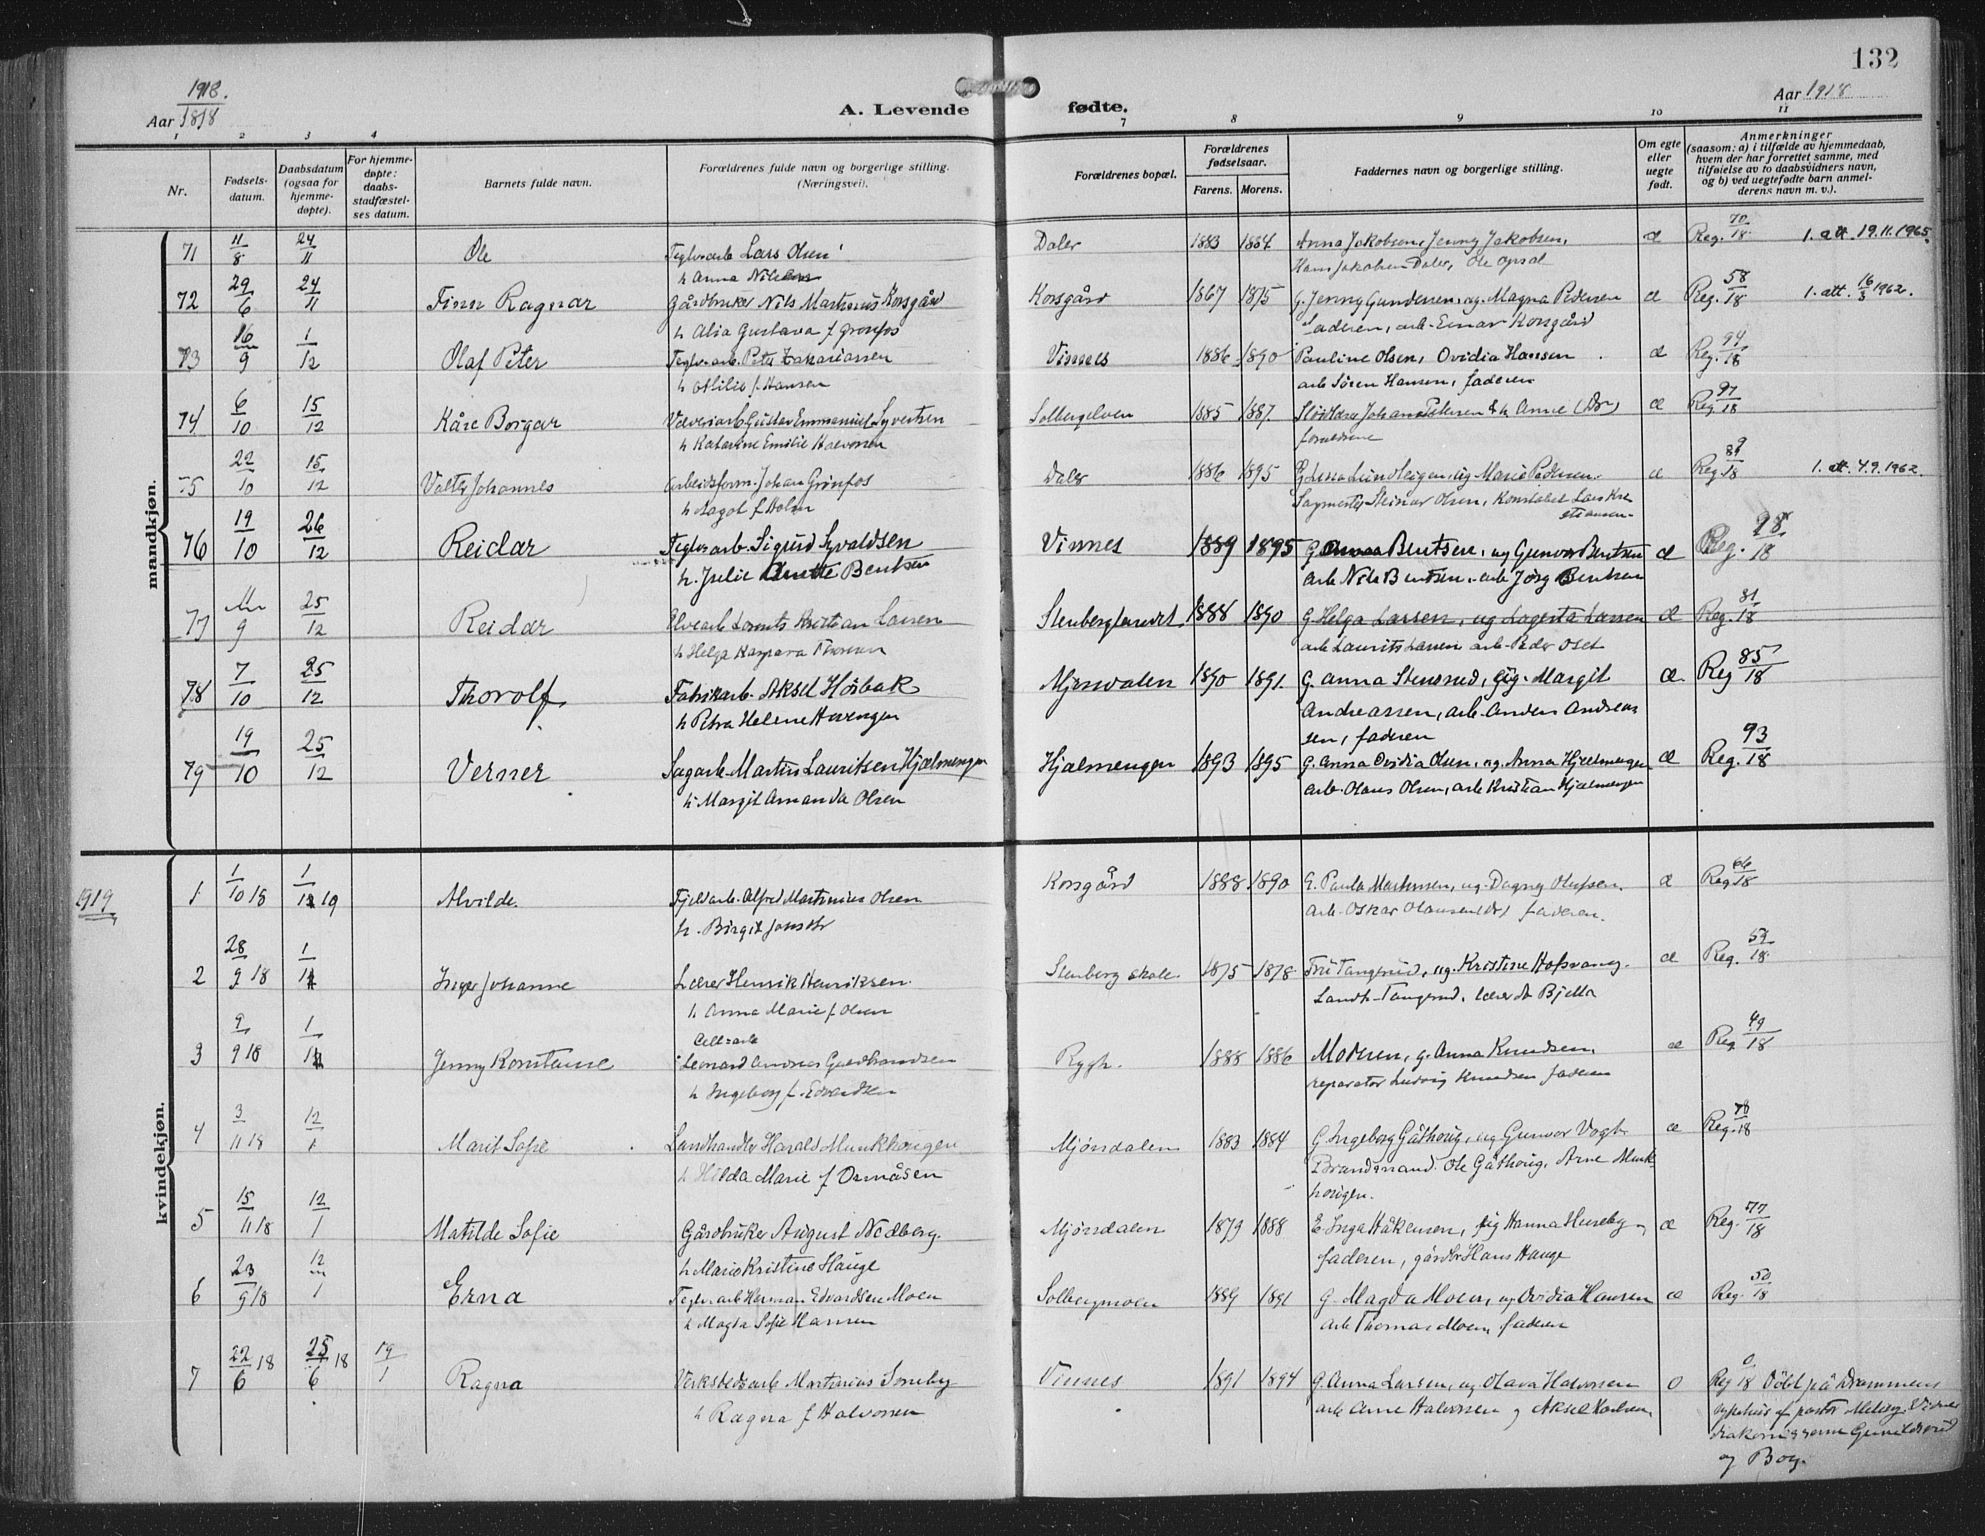 132
1918.
Aar 1818
A. Levende fødte.
Aar 1918
1 2 3 4 7 8 9 10 11
Nr.
Fødsels-
datum.
Daabsdatum
(ogsaa for
hjemme-
døpte).
For hjemme-
døpte:
daabs-
stadfæstel-
ses datum.
Barnets fulde navn.
Forældrenes fulde navn og borgerlige stilling.
(Næringsvei).
Forældrenes bopæl.
Forældrenes
fødselsaar.
Farens. Morens.
Faddernes navn og borgerlige stilling.
Om egte
eller
uegte
født.
Anmerkninger
(saasom: a) i tilfælde av hjemmedaab,
hvem der har forrettet samme, med
tilføielse av to daabsvidners navn,
og b) ved uegtefødte barn anmel-
derens navn m. v.).
mandkjøn.
71 11/8 24/11 Ole Teglverarb Lars Olsen Daler 1883 1884 Anna Jakobsen, Jenny Jakobsen, æ Reg. 70/18 1. att. 19.11.1965.
h Anna Nilsen Hans Jakobsen Daler, Ole Opsal
72 29/6 24/11 Finn Ragnar Gårdbruker Nils Martinius Korsgård Korsgård 1867 1875 G. Jenny Gundersen, ug. Magna Pedersen æ Reg. 58/18 1. att. 16/3 1962.
h Alia Gustava f Grønfos faderen, arb Einar Korsgård
73 16/9 1/12 Olaf Peter Teglverarb. Peter Zakariassen Vinnes 1886 1890 Pauline Olsen, Ovidia Hansen æ Reg. 94/18
h Otilie f. Hansen arb Søren Hansen, faderen
74 6/10 15/12 Kåre Borgar Væveriarb Gustav Emmanuel Syvertsen Solbergelven 1885 1887. Johan Petersen & h Anne æ Reg. 97/18
h Katarine Emilie Halvorsen forældrene
75 22/10 15/12 Valter Johannes Arbeidsform. Johan Grønfos Daler 1886 1895 ug Marie Pedersen. æ Reg. 89/18 1. att. 4.9.1962.
h Aagot f Holm Sagmester Steinar Olsen, Konstabel Lars Kre
stiansen
76 19/10 26/12 Reidar Teglverarb. Sigurd Syvaldsen Vinnes 1889 1895 G. Anna Bentsen, ug Gunvor Bentsen æ Reg. 98/18
h. Julie Anette Bentsen arb Nils Bentsen, arb Jørg Bentsen
77 9 25/12 Reidar Elvearb Laurits Kristian Larsen Stenberglandet 1888 1890 G. Helga Larsen, ug Lagerta Larsen æ Reg. 81/18
h Helga Kaspara Thoresen arb Laurits Larsen arb Peder Oset
78 7/10 25/12 Thorolf Fabrikarb. Aksel Hosbak Mjøndalen 1890 1891. G. Anna Stensrud, pig. Margit æ. Reg 85/18
h Petra Helene Horgen Andreassen, arb. Anders Andreas
sen, faderen
79 19/10 25/12 Verner Sagarb. Martin Lauritsen Hjælmengen Hjælmengen 1893 1895 G. Anna Ovidia Olsen, ug. Anna Hjælmengen æ Reg. 93/18
h Margit Amanda Olsen arb. Olaus Olsen, arb Kristian Hjælmengen
kvindekjøn.
1919
1 1/10 18 1/1 19 Alvilde. Fjeldarb. Alfred Martinius Olsen Korsgård 1888 1890 G. Paula Martinsen, ug. Dagny Olufsen. æ Reg 66/18
h. Birgit Jonsdtr arb. Oskar Olausen, faderen.
2 28/9 18 1/1 Inger Johanne Lærer Henrik Henriksen. Stenberg skole 1875 1878 Fru Tangerud, ug. Kristine Hofsvang. æ Reg. 59/18
h. Anna Marie f Olsen Landh. Tangerud, lærer Bjella
3 9/9 18 1/1 Jenny Konstanse Cell=arb
Leonard Andreas Gulbrandsen Rygh. 1888 1886 Moderen, g. Anna Knudsen, æ Reg. 49/18
h Ingeborg f. Edvardsen reparatør Ludvig Knudsen faderen
4 3/11 18 12/1 Marit Sofie Landhandler Harald Munkhaugen Mjøndalen 1883 1884 G Ingeborg Gåthaug, ug Gunvor Vogt æ Reg. 78/18
h Hilda Marie f Ormåsen Ole Gåthaug, Arne Munk
haugen.
5 15/11 18 12/1 Matilde Sofie Gårdbruker August Nedberg. Mjøndalen 1879 1888 E. Inga Håkensen, pig Hanna Huseby æ Reg. 77/18
h Marie Kristine Hauge faderen, gårdbr Hans Hauge
6 23/9 18 12/1 Erna Teglverarb Herman Edvardsen Moen Solbergmoen 1889 1891 G. Magda Moen, ug Ovidia Hansen æ Reg. 50/18
h Magda Sofie Hansen arb Thomas Moen, faderen
7 22/6 18 25/6 18 19/1 Ragna Verkstedsarb Martinius Sørneby Vinnes 1891 1894 G. Anna Larsen, ug Olava Halvorsen o Reg 0/18 Døbt på Drammens
h Ragna f Halvorsen arb Arne Halvorsen og Aksel Karlsen, sykehus af pastor Vidner
diakonisserne
og Boy.